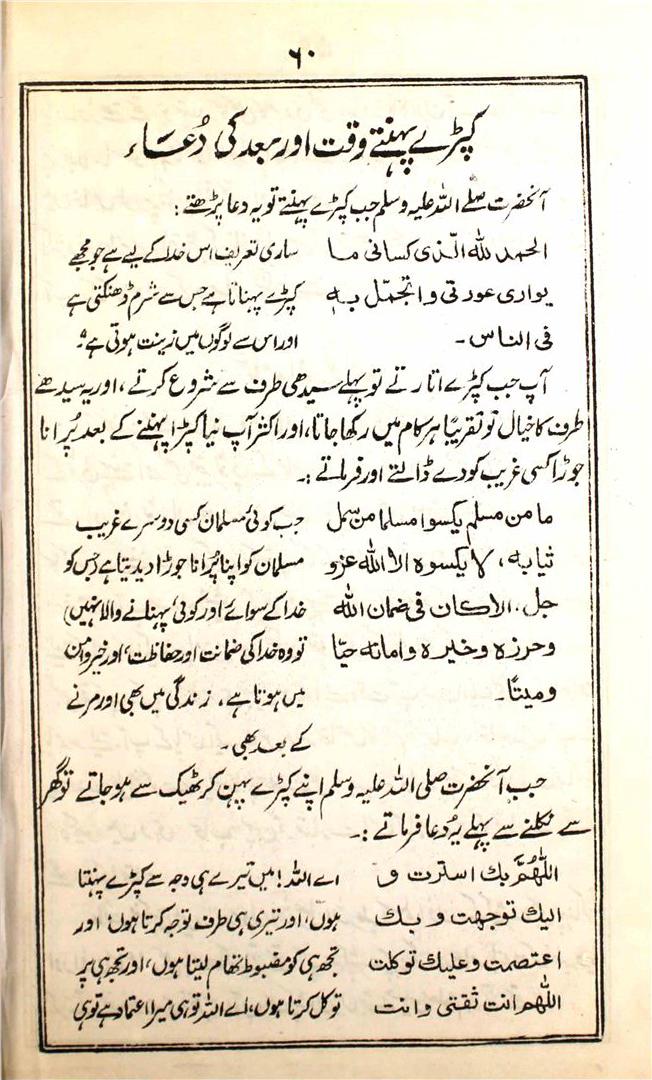 ۶۰
کپڑے پہنتے وقت اور بعد کی دُعاء
آنحضرت صلے اللہ علیہ وسلم جب کپڑے پہنتے تو یہ دعا پڑھتے :
الحمد للہ الذی کسانی ما ساری تعریف اس خدا کے لیے ہے جو مجھے
یواری عورتی واتجمل بہ کپڑے پہناتا ہے جس سے شرم ڈھنکتی ہے
فی الناس ۔ اور اس سے لوگوں میں زینت ہوتی ہے؟
آپ جب کپڑے اتارتے تو پہلے سیدھی طرف سے شروع کرتے ، اور یہ سیدھے
طرف کا خیال تو تقریبًا ہر کام میں رکھا جاتا، اور اکثر آپ نیا کپڑا پہننے کے بعد پُرانا
جوڑا کسی غریب کو دے ڈالتے اور فرماتے :۔
ما من مسلم یکسوا مسلما من سمل جب کوئی مسلمان کسی دوسرے غریب
ثیابہ ، لا یکسوہ الا اللہ عزو مسلمان کو اپنا پُرانا جوڑا دیدیتا ہے (جس کو
جل ، الا کان فی ضمان اللہ خدا کے سوائے اور کوئی پہنانے والا نہیں)
وحرزہ وخیرہ وامانہ حیّا تو وہ خدا کی ضمانت اور حفاظت، اور خیر وامن
ومیتًا۔ میں ہوتا ہے ، زندگی میں بھی اور مرنے
کے بعد بھی ۔
جب آنحضرت صلی اللہ علیہ وسلم اپنے کپڑے پہن کر ٹھیک سے ہو جاتے تو گھر
سے نکلنے سے پہلے یہ دُعا فرماتے :۔
اللّٰھُمَّ بک استرت و اے اللہ ! میں تیرے ہی وجہ سے کپڑے پہنتا
الیک توجھت وبک ہوں، اور تیری ہی طرف توجہ کرتا ہوں؛ اور
اعتصمت وعلیک توکلت تجھ ہی کو مضبوط تھام لیتا ہوں، اور تجھ ہی پر
اللھم انت ثقتی وانت توکل کرتا ہوں، اے اللہ تو ہی میرا اعتماد ہے تو ہی